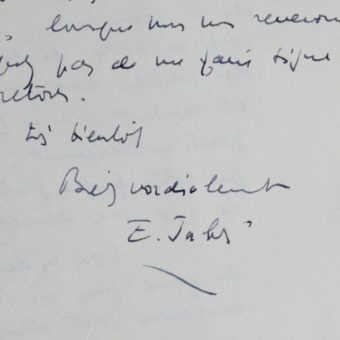 , lorsque nous nous reverrons
pas de me faire signe
retour.
bientôt
Bien cordialement
E.